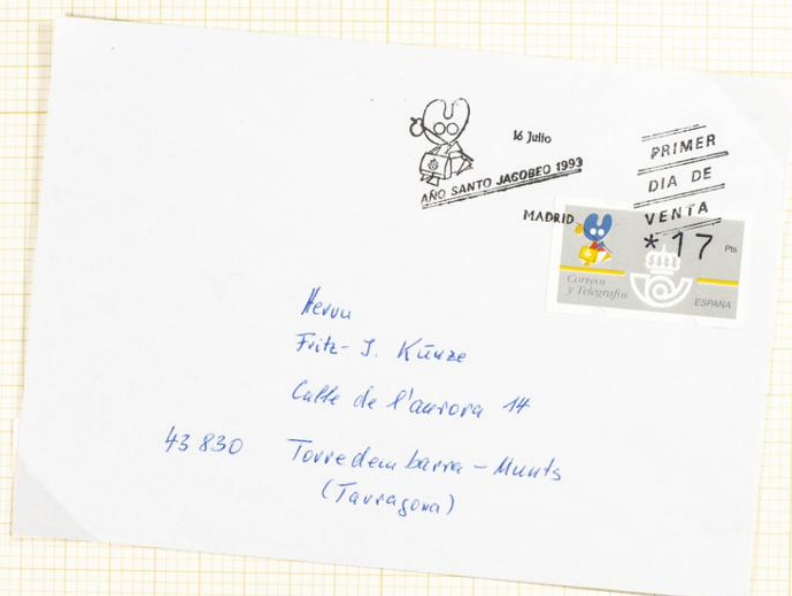 16 Julio
AÑO SANTO JACOBEO 1993
MADRID
PRIMER
DIA DE
VENTA
*17 Pts
Correos
y Telégrafos
ESPAÑA
Herrn
Fritz-J. Kunze
Calle de l'aurora 14
43 830 Torredembarra-Munts
(Tarragona)